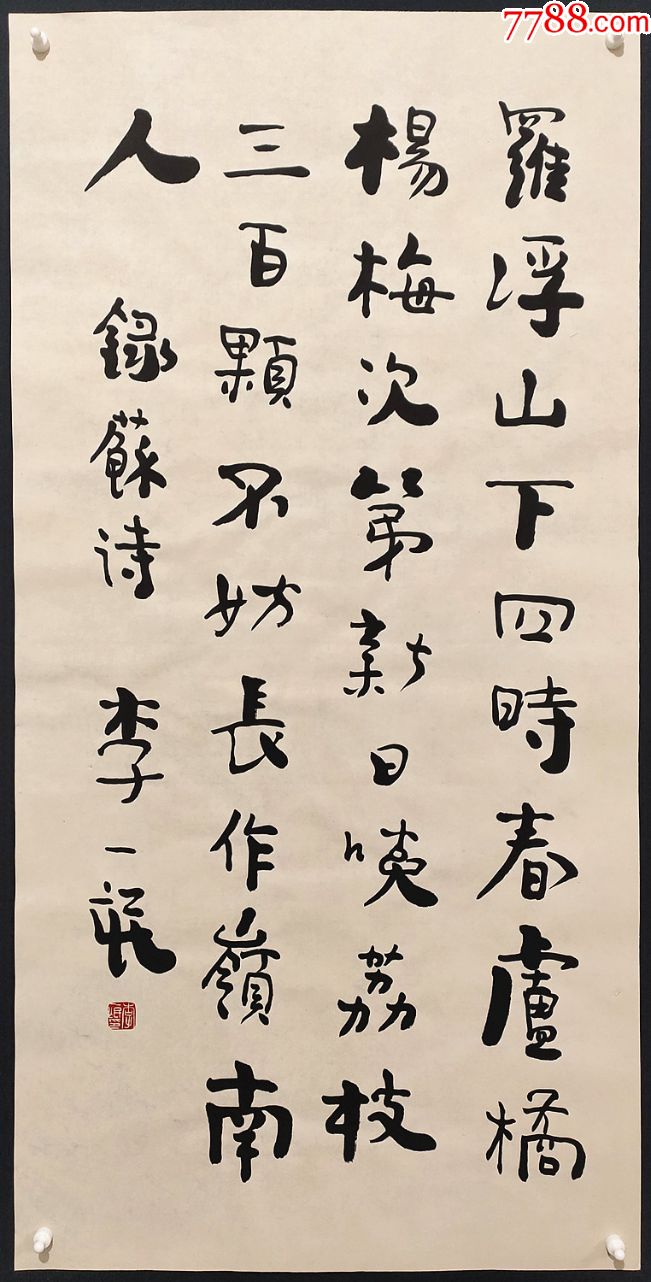 7788.com
羅浮山下四時春盧橘
楊梅次第新日啖荔枝
三百顆不妨長作嶺南
人 錄蘇诗 李一